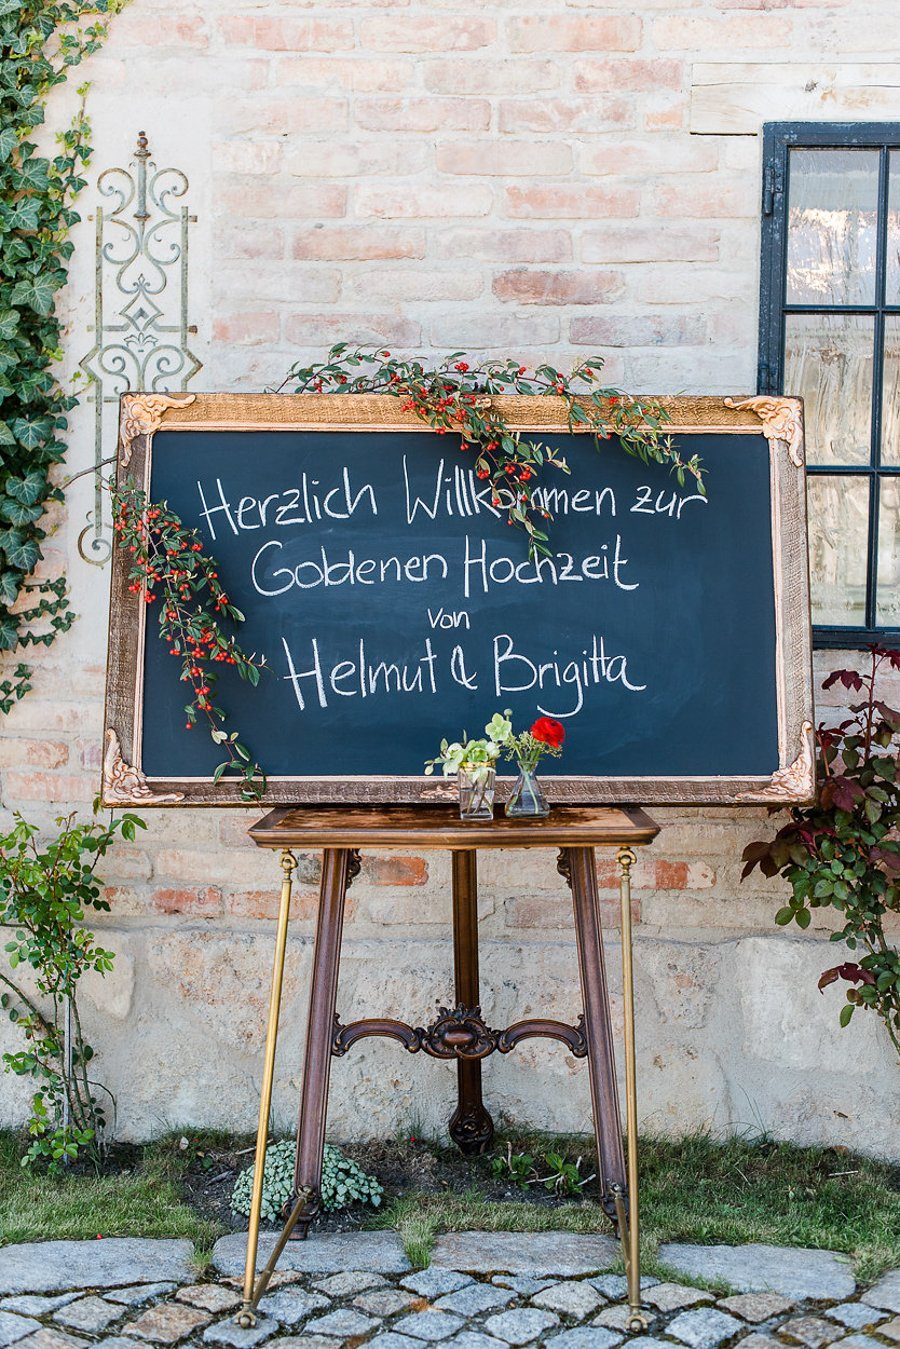 Herzlich Willkommen zur
Goldenen Hochzeit
von
Helmut & Brigitta